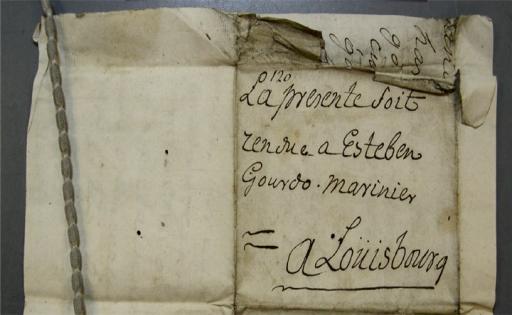 120
La presente soit
rendue a Esteben
Gourdo. marinier
= a Loüisbourg